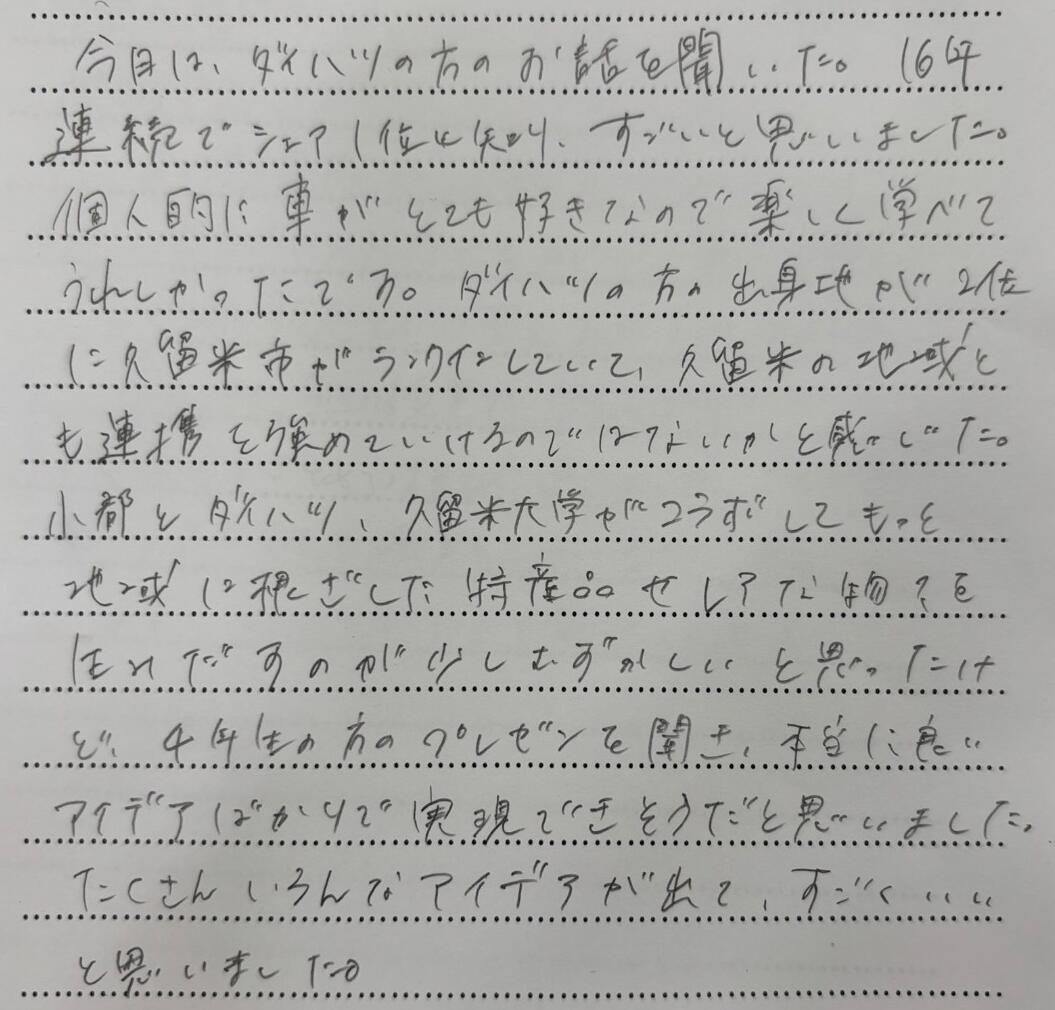 今日は、ダイハツの方のお話を聞いた。16年
連続でシェア1位と知り、すごいと思いました。
個人的に車がとても好きなので楽しく学べて
うれしかったです。ダイハツの方の出身地が2位
に久留米市がランクインしていて、久留米の地域と
も連携を強めていけるのではないかと感じた。
小郡とダイハツ、久留米大学がコラボしてもっと
地域に根ざした特産品やレアな物を
生みだすのが少しむずかしいと思ったけ
ど、4年生の方のプレゼンを聞き、本当に良い
アイデアばかりで実現できそうだと思いました。
たくさんいろんなアイデアが出て、すごくいい
と思いました。